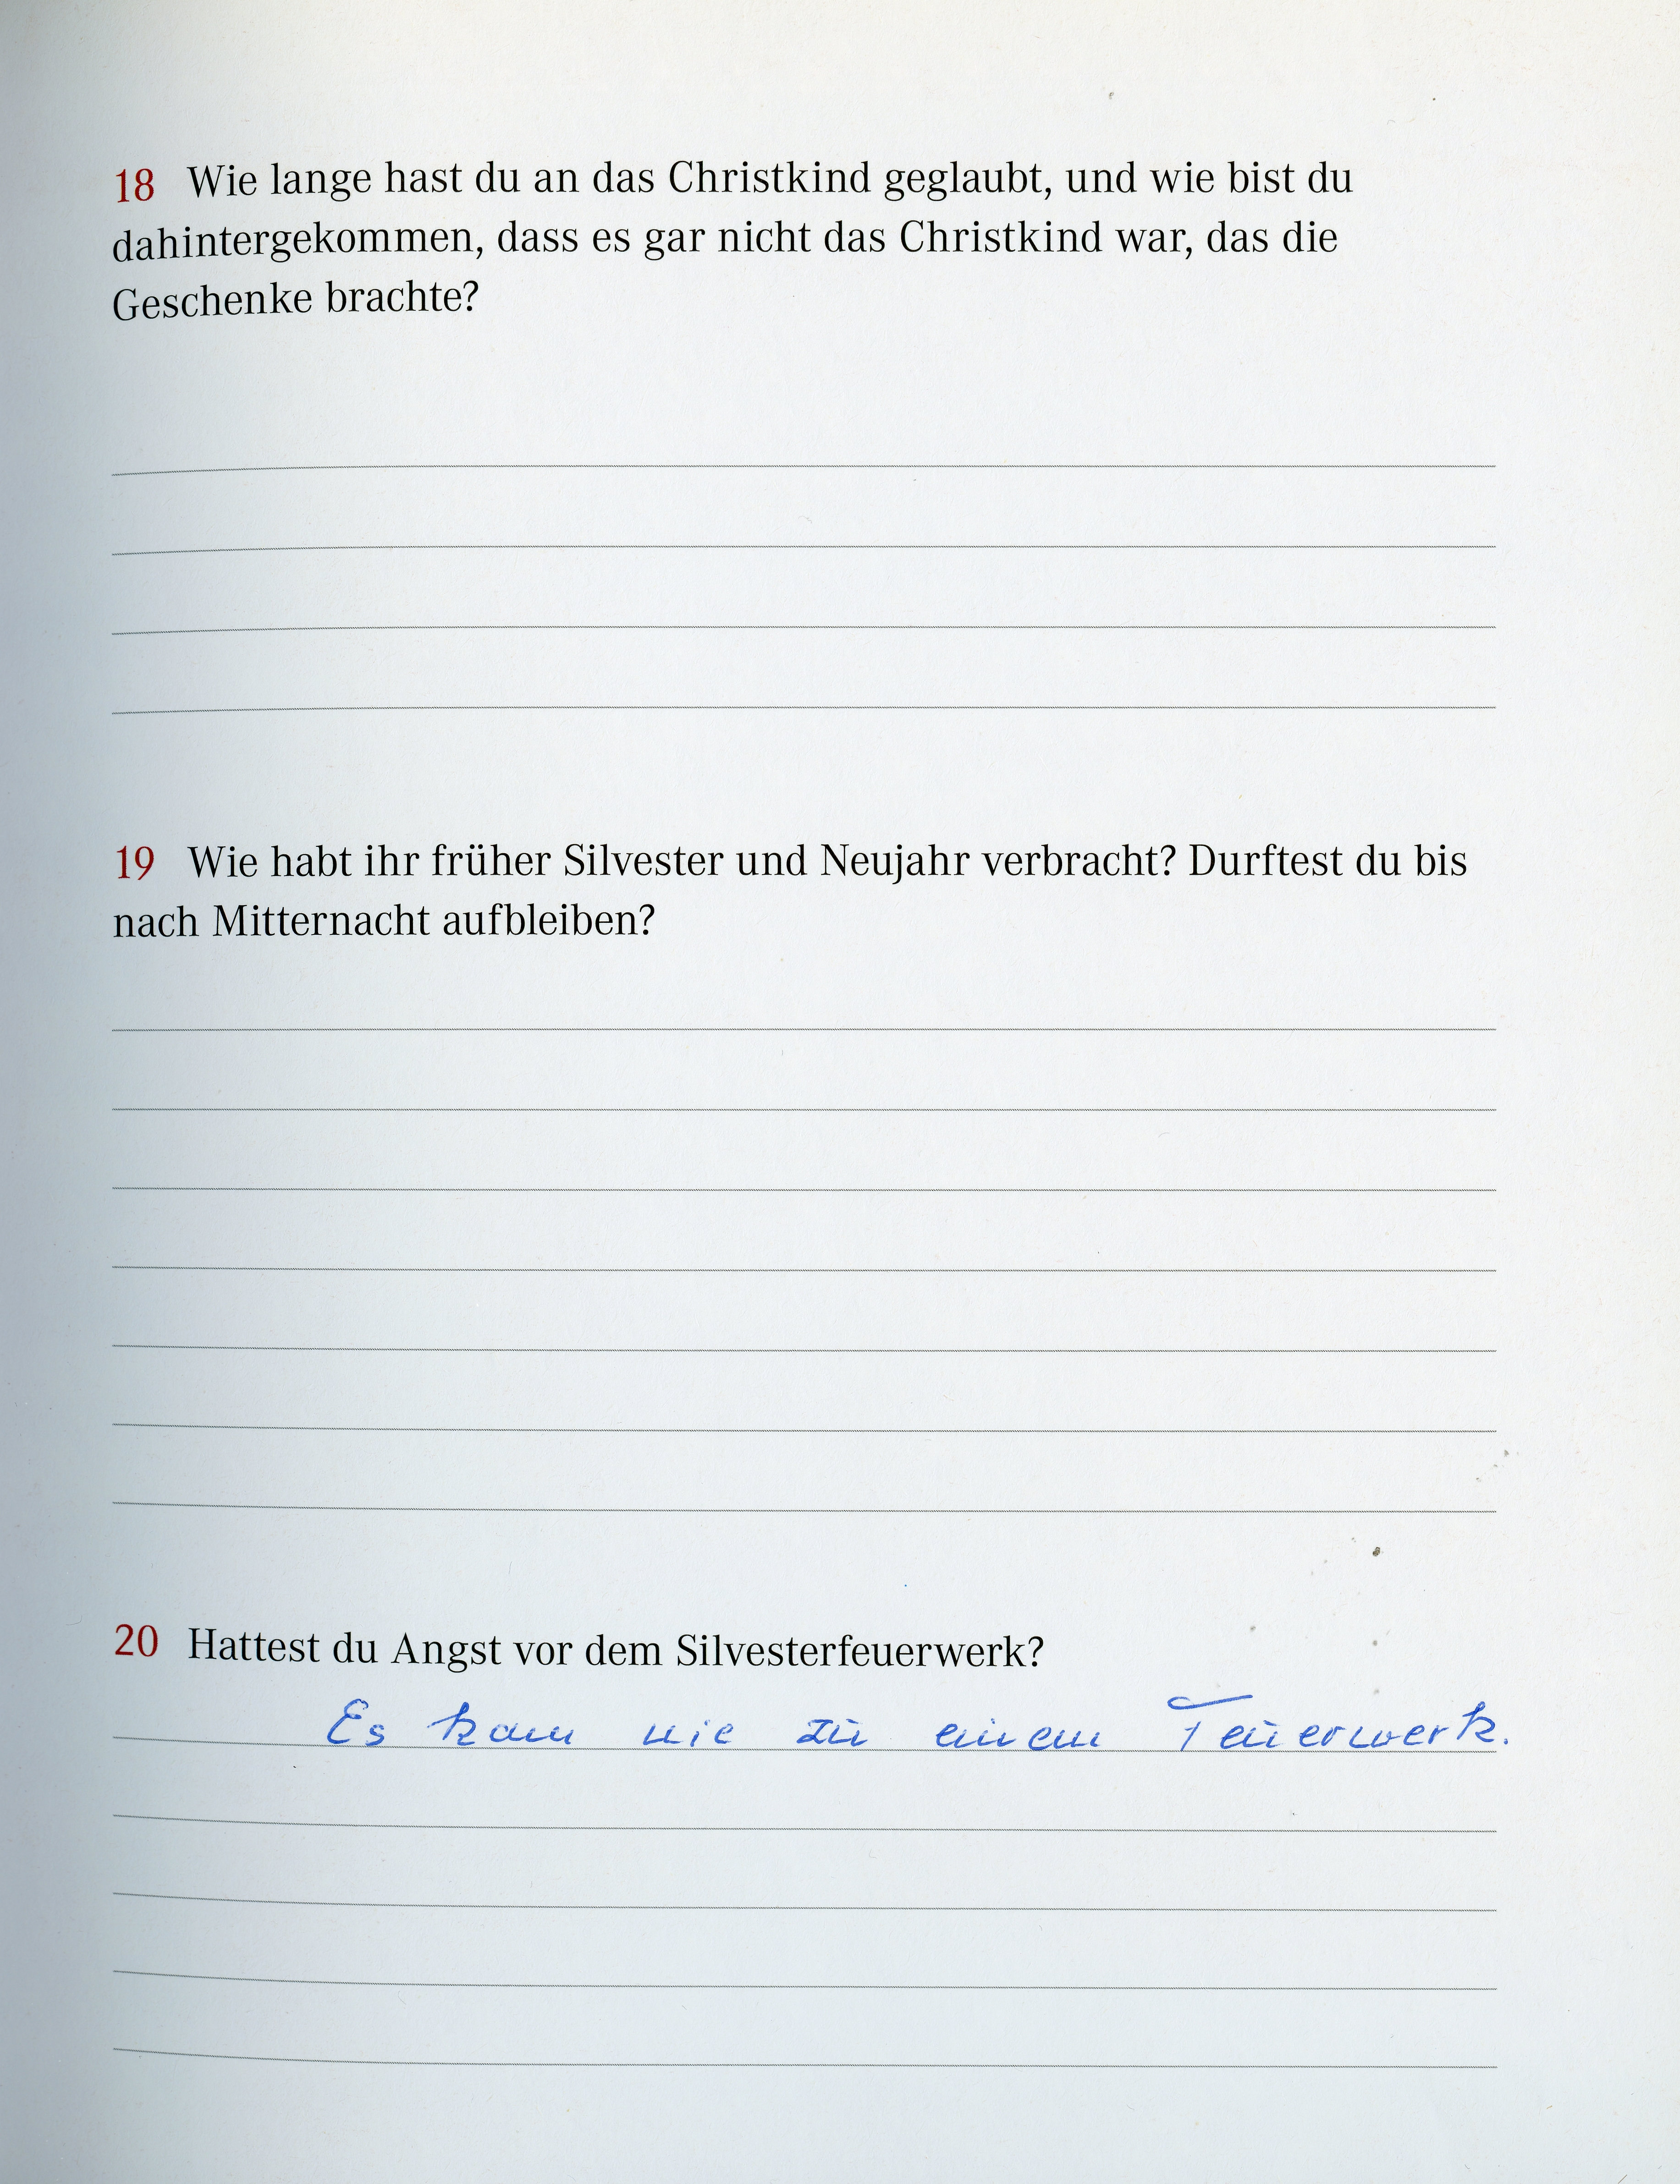 18 Wie lange hast du an das Christkind geglaubt, und wie bist du
dahintergekommen, dass es gar nicht das Christkind war, das die
Geschenke brachte?
19 Wie habt ihr früher Silvester und Neujahr verbracht? Durftest du bis
nach Mitternacht aufbleiben?
20 Hattest du Angst vor dem Silvesterfeuerwerk?
Es kam nie zu einem Feuerwerk.